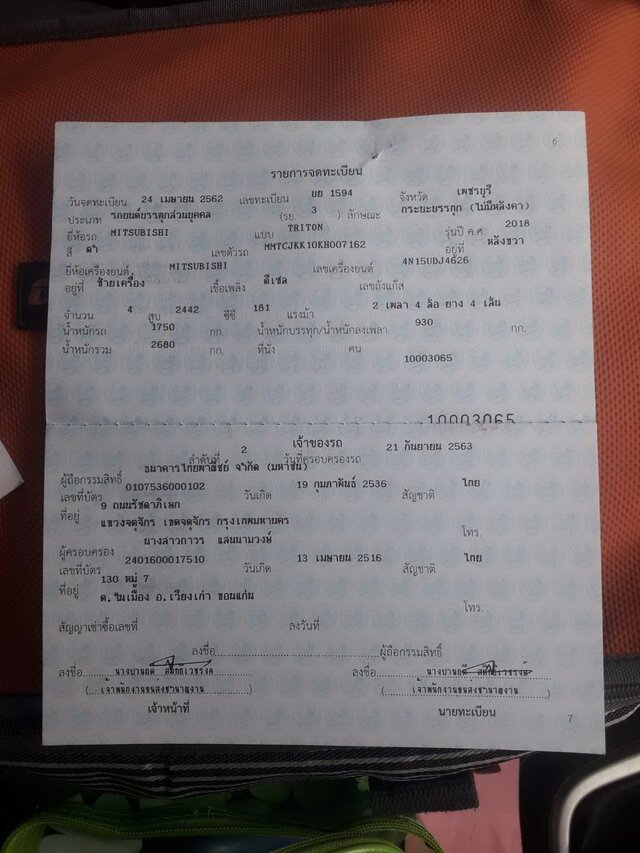 6
รายการจดทะเบียน
วันจดทะเบียน 24 เมษายน 2562 เลขทะเบียน บย 1594 จังหวัด เพชรบุรี
ประเภท รถยนต์บรรทุกส่วนบุคคล (รย. 3 ) ลักษณะ กระบะบรรทุก (ไม่มีหลังคา)
ยี่ห้อรถ MITSUBISHI แบบ TRITON รุ่นปี ค.ศ. 2018
สี ดำ เลขตัวรถ MMTCJKK10KH007162 อยู่ที่ หลังขวา
ยี่ห้อเครื่องยนต์ MITSUBISHI เลขเครื่องยนต์ 4N15UDJ4626
อยู่ที่ ซ้ายเครื่อง เชื้อเพลิง ดีเซล เลขถังแก๊ส
จำนวน 4 สูบ 2442 ซีซี 181 แรงม้า 2 เพลา 4 ล้อ ยาง 4 เส้น
น้ำหนักรถ 1750 กก. น้ำหนักบรรทุก/น้ำหนักลงเพลา 930 กก.
น้ำหนักรวม 2680 กก. ที่นั่ง คน
10003065
10003065
เจ้าของรถ
ลำดับที่ 2 วันที่ครอบครองรถ 21 กันยายน 2563
ผู้ถือกรรมสิทธิ์ ธนาคารไทยพาณิชย์ จำกัด (มหาชน)
เลขที่บัตร 0107536000102 วันเกิด 19 กุมภาพันธ์ 2536 สัญชาติ ไทย
ที่อยู่ 9 ถนนรัชดาภิเษก
แขวงจตุจักร เขตจตุจักร กรุงเทพมหานคร โทร.
ผู้ครอบครอง นางสาวถาวร แสนนามวงษ์
เลขที่บัตร 2401600017510 วันเกิด 13 เมษายน 2516 สัญชาติ ไทย
ที่อยู่ 130 หมู่ 7
ต.ในเมือง อ.เวียงเก่า ขอนแก่น โทร.
สัญญาเช่าซื้อเลขที่ ลงวันที่
ลงชื่อ ผู้ถือกรรมสิทธิ์
ลงชื่อ ลงชื่อ
(เจ้าพนักงานขนส่งชำนาญงาน) (เจ้าพนักงานขนส่งชำนาญงาน)
เจ้าหน้าที่ นายทะเบียน
7